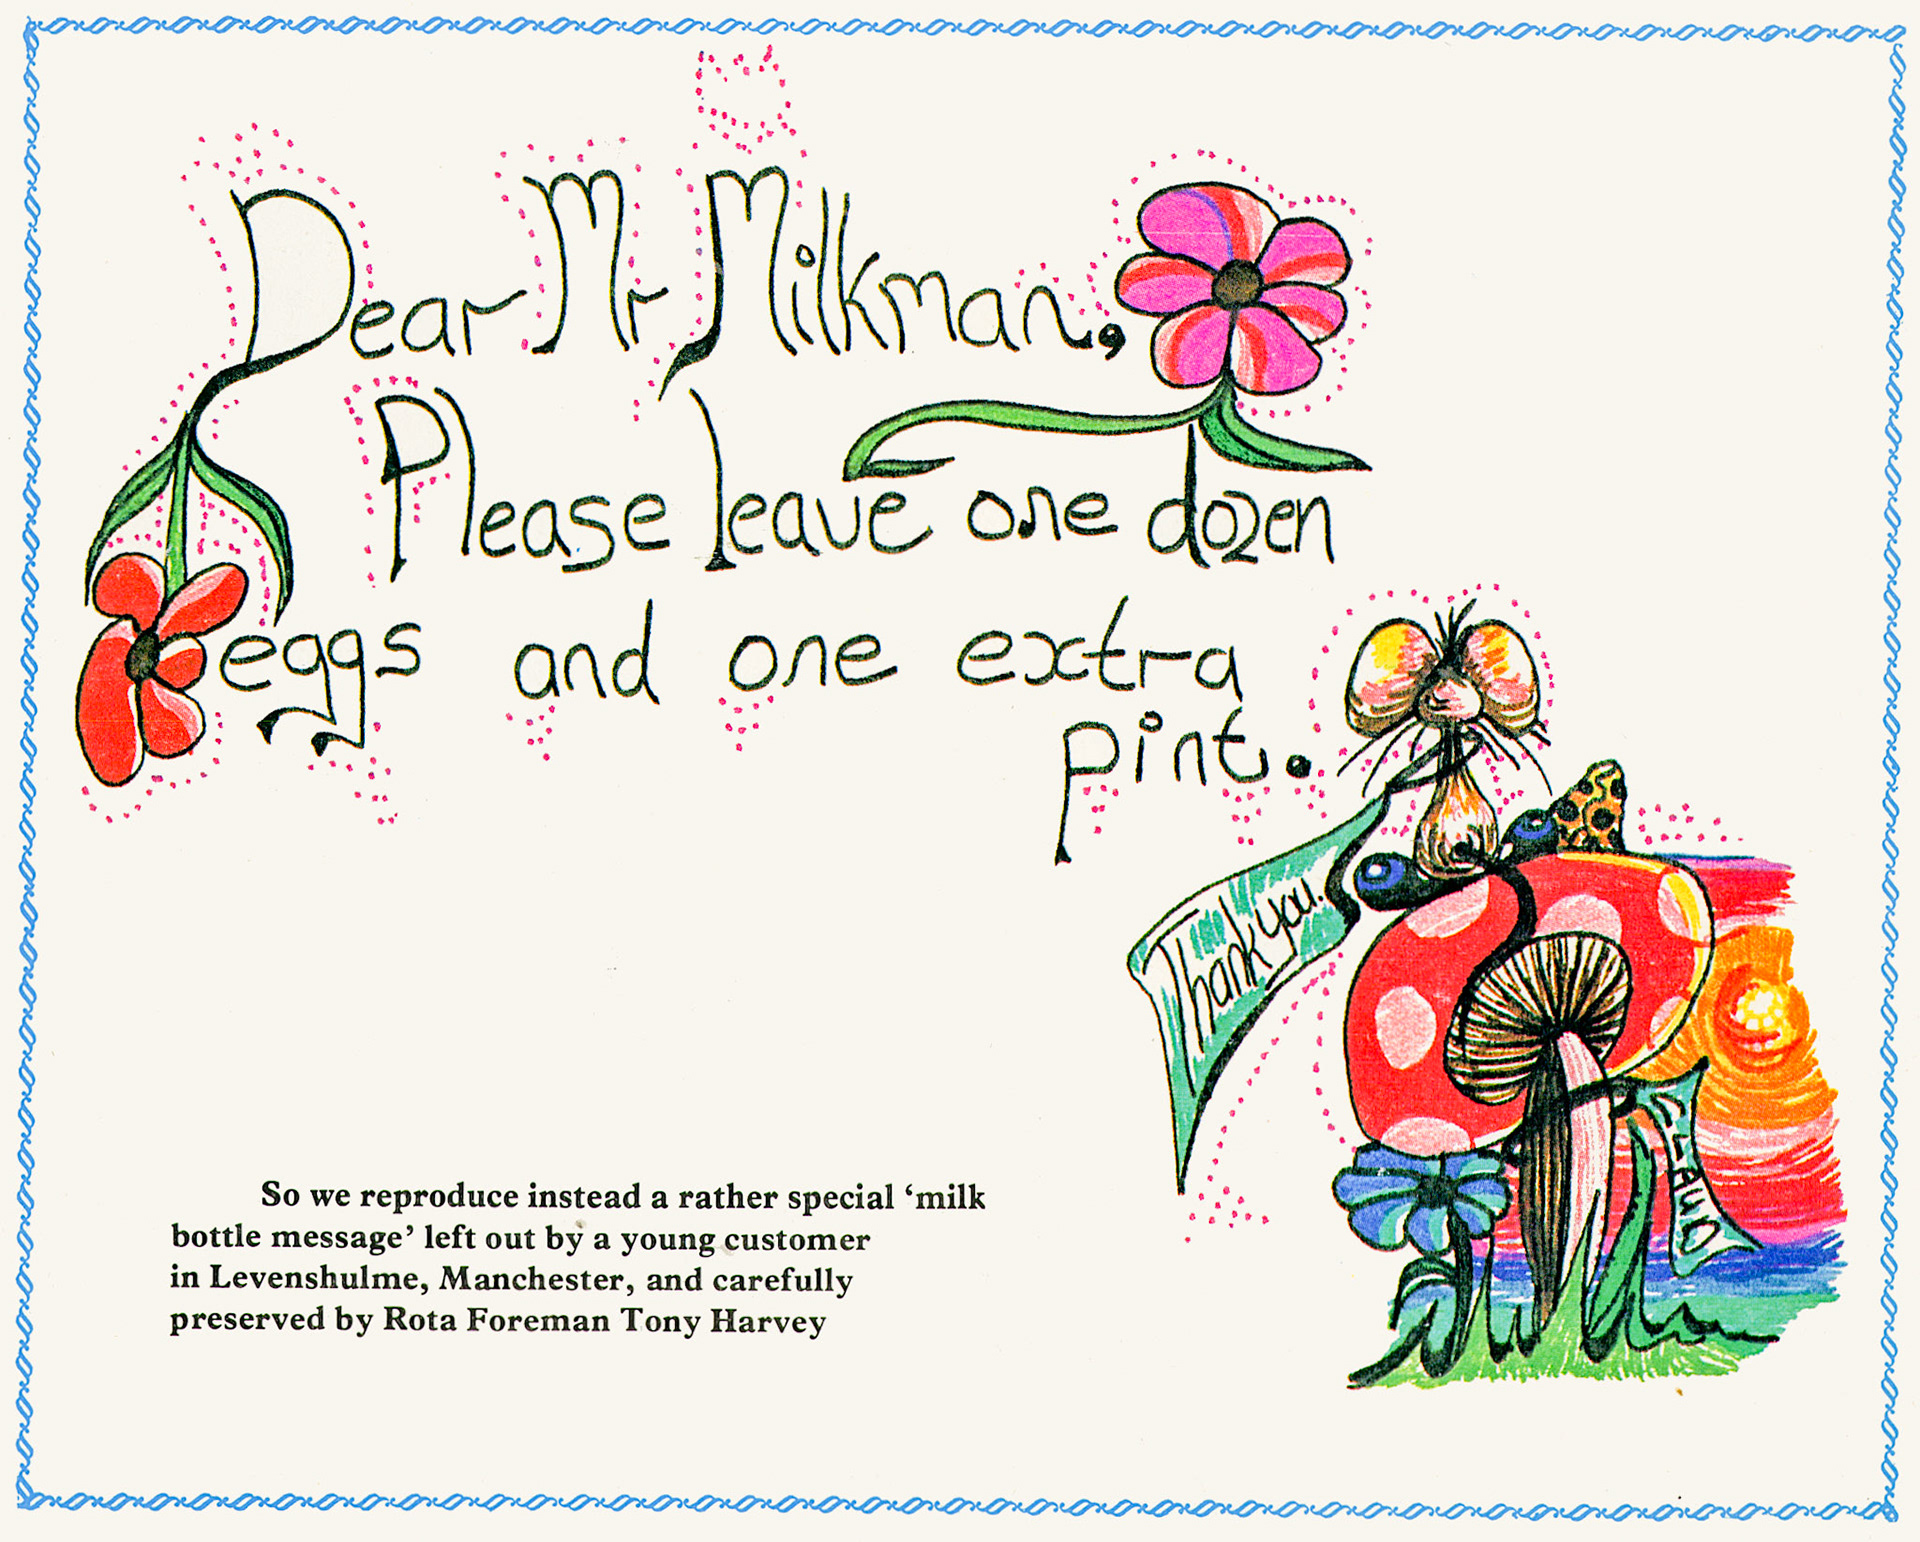 Dear Mr Milkman,
Please leave one dozen
eggs and one extra
pint.
Thank you.
CLAUD
So we reproduce instead a rather special ‘milk
bottle message’ left out by a young customer
in Levenshulme, Manchester, and carefully
preserved by Rota Foreman Tony Harvey